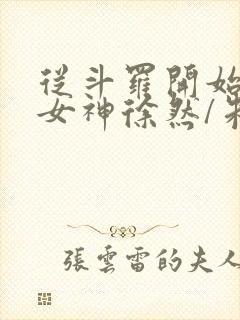 從斗羅開始
女神徐然/
張雲雷的夫人